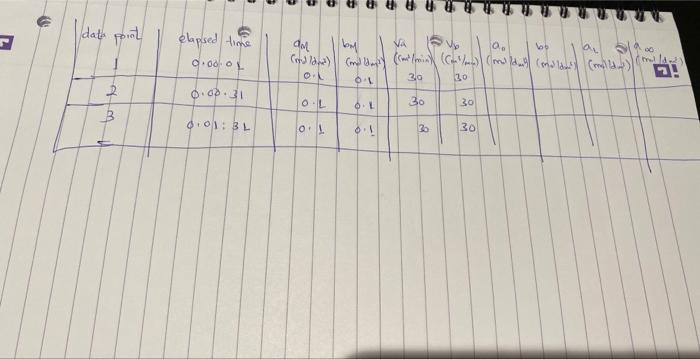 data point elapsed time aM bM Va Vb a₀ b₀ a₁ a∞
(mol/dm³) (mol/dm³) (cm³/min) (cm³/min) (mol/dm³) (mol/dm³) (mol/dm³) (mol/dm³)
1 0:00:01 0.1 0.1 30 30
2 0:00:31 0.1 0.1 30 30
3 0:01:31 0.1 0.1 30 30